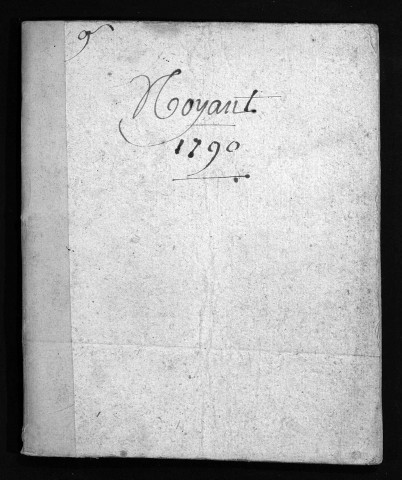 9
Noyant
1790